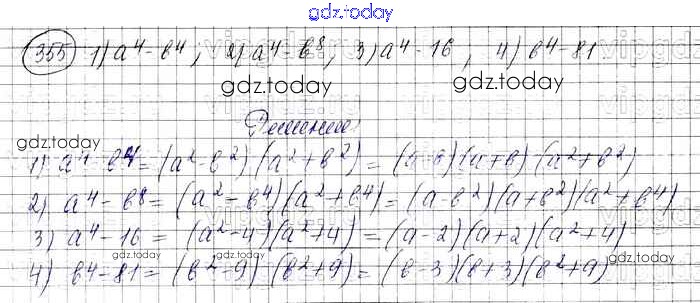 gdz.today
355 1) a⁴-в⁴; 2) a⁴-в⁸; 3) a⁴-16; 4) в⁴-81
gdz.today gdz.today
Решение:
gdz.today
1) a⁴-в⁴=(a²-в²)(a²+в²)=(a-в)(a+в)(a²+в²)
2) a⁴-в⁸=(a²-в⁴)(a²+в⁴)=(a-в²)(a+в²)(a²+в⁴)
3) a⁴-16=(a²-4)(a²+4)=(a-2)(a+2)(a²+4)
gdz.today gdz.today
4) в⁴-81=(в²-9)(в²+9)=(в-3)(в+3)(в²+9)